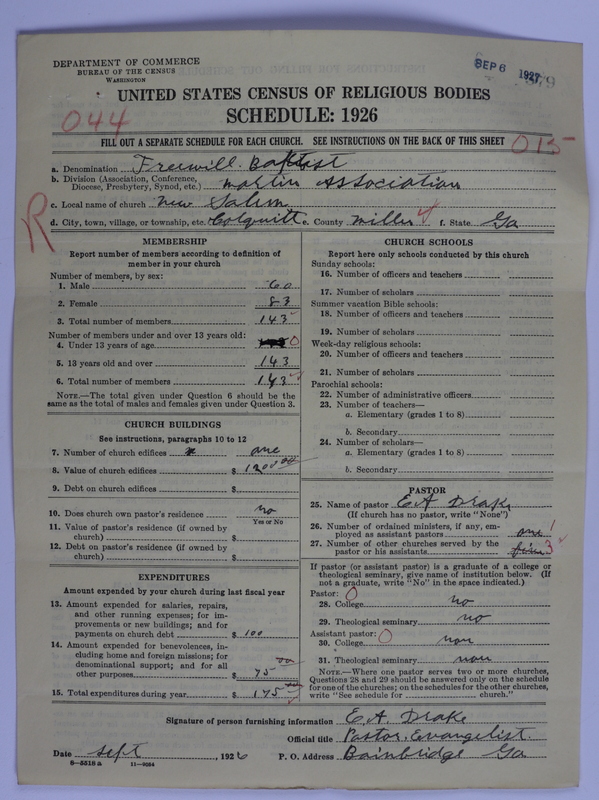 DEPARTMENT OF COMMERCE
BUREAU OF THE CENSUS
WASHINGTON
SEP 6 1927
UNITED STATES CENSUS OF RELIGIOUS BODIES
SCHEDULE: 1926
044
FILL OUT A SEPARATE SCHEDULE FOR EACH CHURCH. SEE INSTRUCTIONS ON THE BACK OF THIS SHEET
015
a. Denomination Freewill Baptist
b. Division (Association, Conference, Diocese, Presbytery, Synod, etc.) Martin Association
c. Local name of church New Salem
R
d. City, town, village, or township, etc. Colquitt e. County Miller f. State Ga
MEMBERSHIP
Report number of members according to definition of
member in your church
Number of members, by sex:
1. Male 60
2. Female 83
3. Total number of members 143
Number of members under and over 13 years old:
4. Under 13 years of age 0
5. 13 years old and over 143
6. Total number of members 143
NOTE.—The total given under Question 6 should be the
same as the total of males and females given under Question 3.
CHURCH BUILDINGS
See instructions, paragraphs 10 to 12
7. Number of church edifices one
8. Value of church edifices $ 1200.00
9. Debt on church edifices $
10. Does church own pastor's residence no
Yes or No
11. Value of pastor's residence (if owned by
church) $
12. Debt on pastor's residence (if owned by
church) $
EXPENDITURES
Amount expended by your church during last fiscal year
13. Amount expended for salaries, repairs,
and other running expenses; for im-
provements or new buildings; and for
payments on church debt $ 100
14. Amount expended for benevolences, in-
cluding home and foreign missions; for
denominational support; and for all
other purposes $ 75 00
15. Total expenditures during year $ 175
CHURCH SCHOOLS
Report here only schools conducted by this church
Sunday schools:
16. Number of officers and teachers
17. Number of scholars
Summer vacation Bible schools:
18. Number of officers and teachers
19. Number of scholars
Week-day religious schools:
20. Number of officers and teachers
21. Number of scholars
Parochial schools:
22. Number of administrative officers
23. Number of teachers—
a. Elementary (grades 1 to 8)
b. Secondary
24. Number of scholars—
a. Elementary (grades 1 to 8)
b. Secondary
PASTOR
25. Name of pastor E A Drake
(If church has no pastor, write "None")
26. Number of ordained ministers, if any, em-
ployed as assistant pastors one 1
27. Number of other churches served by the
pastor or his assistants 3
If pastor (or assistant pastor) is a graduate of a college or
theological seminary, give name of institution below. (If
not a graduate, write "No" in the space indicated.)
Pastor: 0
28. College no
29. Theological seminary no
Assistant pastor: 0
30. College non
31. Theological seminary non
NOTE.—Where one pastor serves two or more churches,
Questions 28 and 29 should be answered only on the schedule
for one of the churches; on the schedules for the other churches,
write "See schedule for church."
Signature of person furnishing information E. A. Drake
Official title Pastor. Evangelist.
Date Sept, 1926 P. O. Address Bainbridge Ga
8—5518 a 11—9554